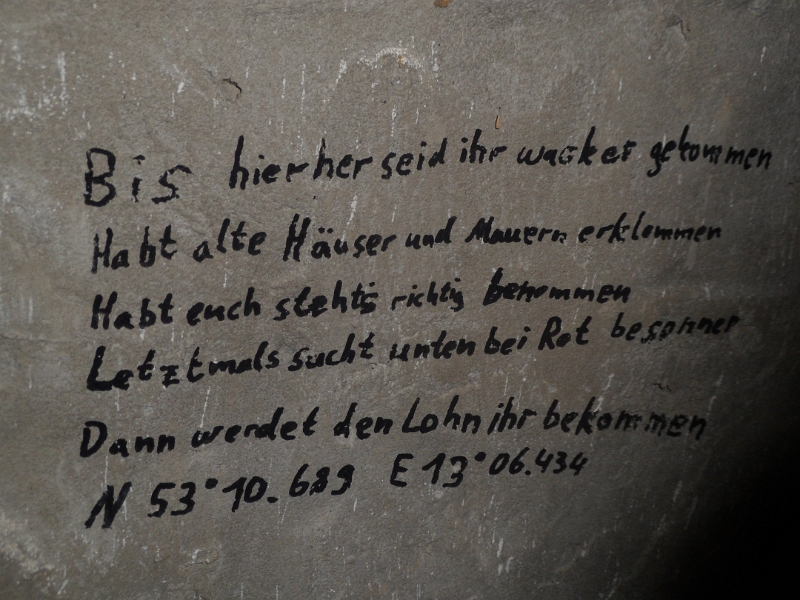 Bis hierher seid ihr wacker gekommen
Habt alte Häuser und Mauern erklommen
Habt euch stehts richtig benommen
Letztmals sucht unten bei Rot besonnen
Dann werdet den Lohn ihr bekommen
N 53°10.689 E 13°06.434